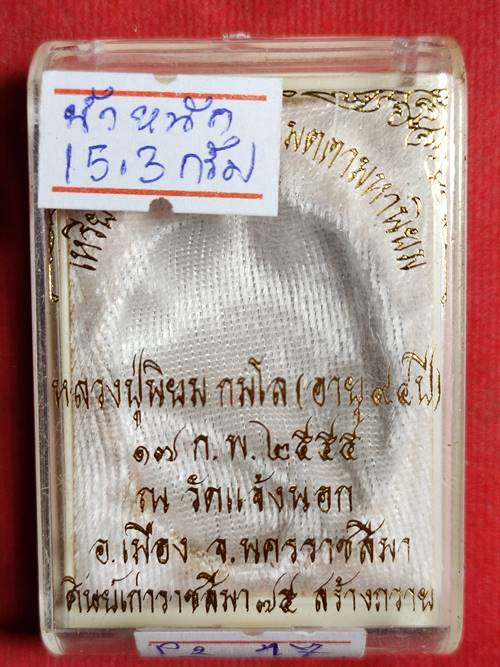 น้ำหนัก
15.3 กรัม
เหรียญ มตตามหานิยม
หลวงปู่นิยม กมโล (อายุ ๙๔ ปี)
๑๗ ก.พ. ๒๕๕๕
ณ วัดแจ้งนอก
อ.เมือง จ.นครราชสีมา
ศิษย์เก่าราชสีมา ๗๕ สร้างถวาย